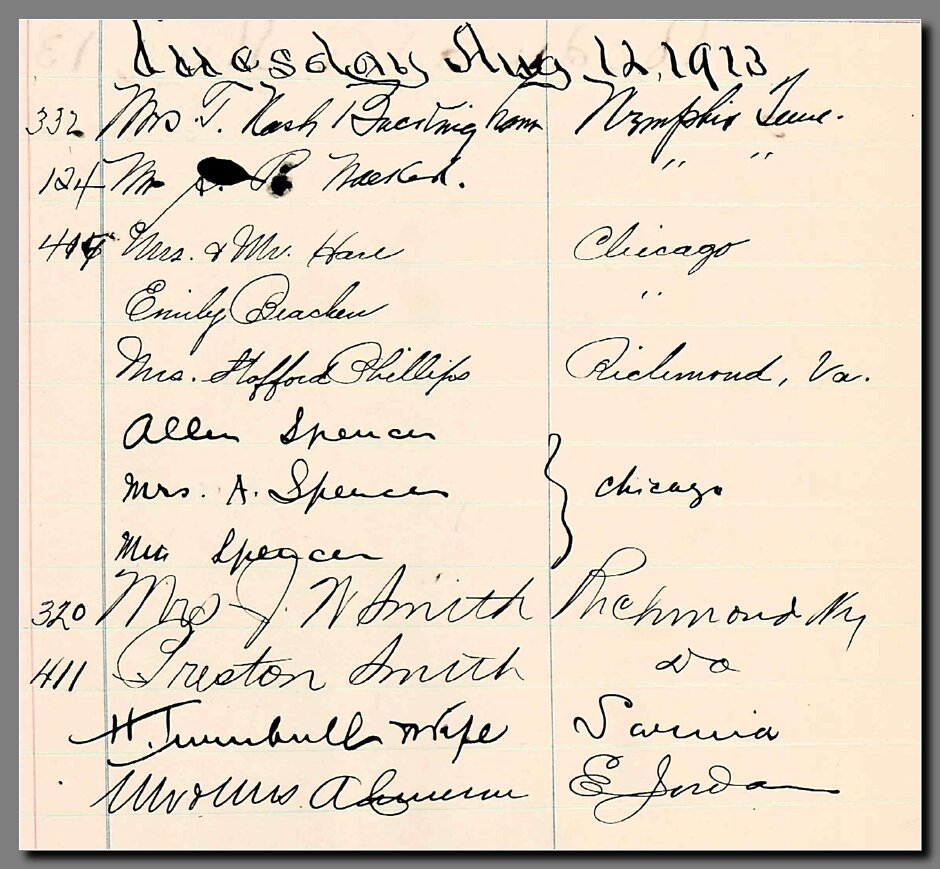 Tuesday Aug 12, 1913
332 Mrs T. Nash Buckingham Memphis Tenn.
124 Mr " "
Mrs. & Mr. Hare Chicago
Emily Bracken "
Mrs. Stofford Phillips Richmond, Va.
Allen Spencer
Mrs. A. Spencer } Chicago
Spencer
320 Mrs J. W Smith Richmond Ky
411 Preston Smith Do
H. Turnbull & Wife Sarnia
Mr & Mrs. A Cameron E Jordan